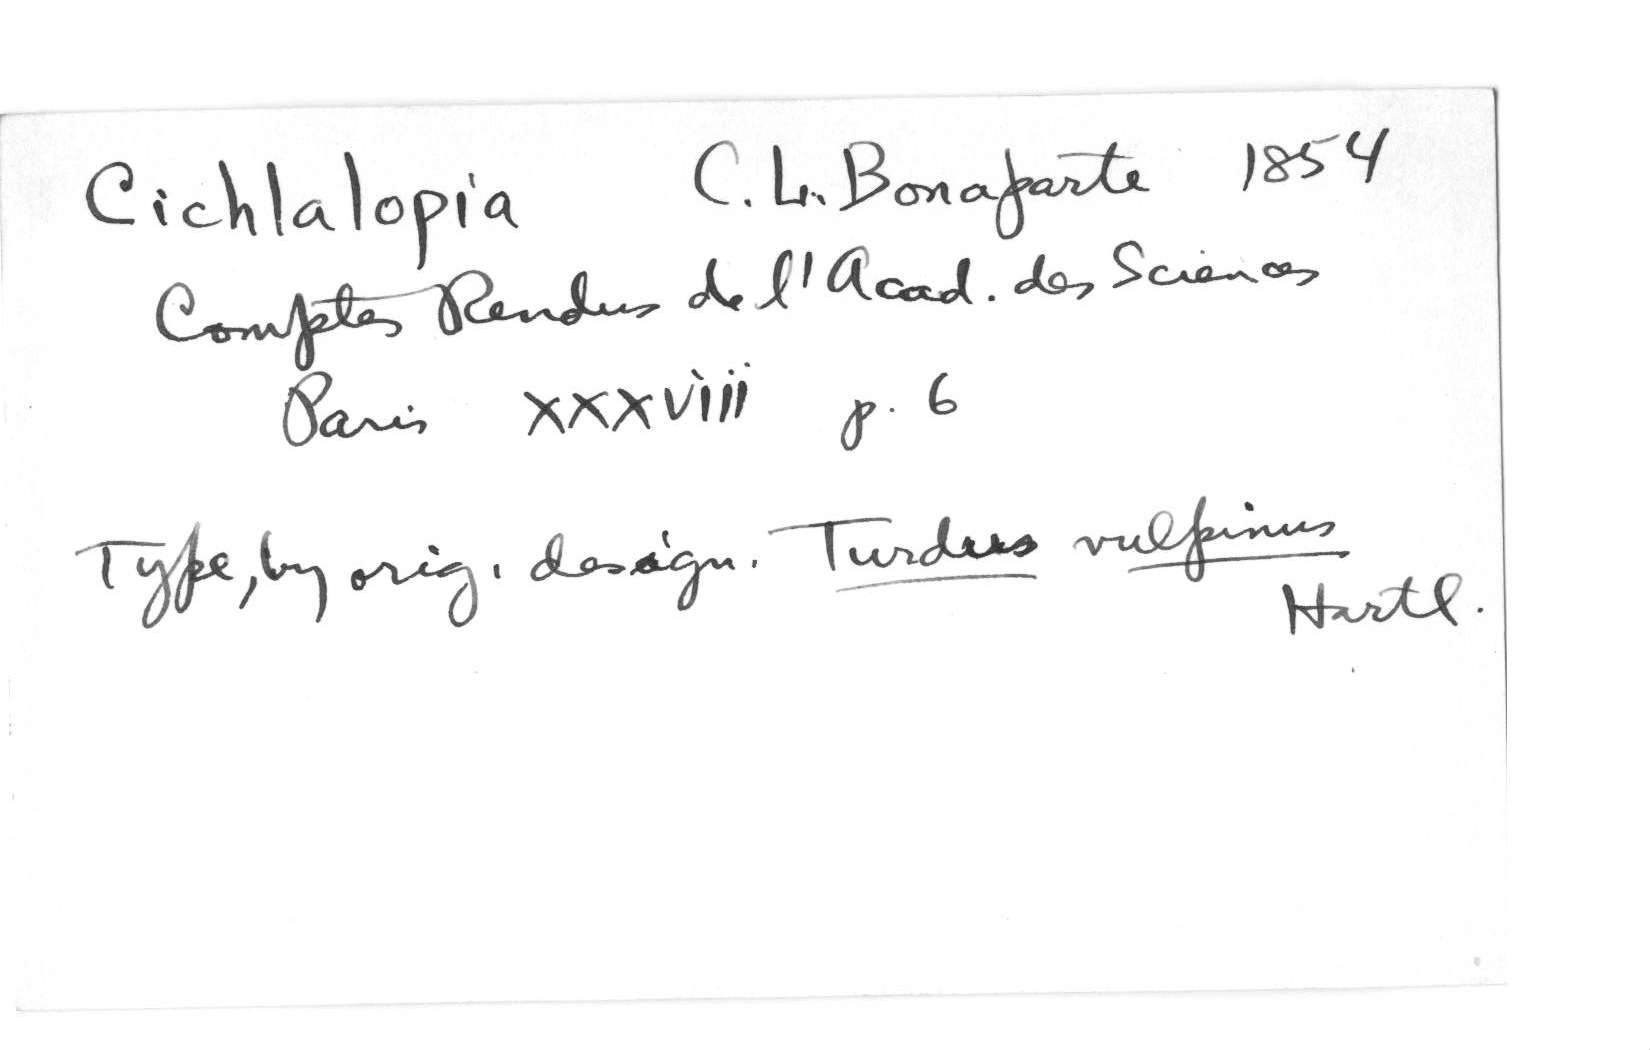 Cichlalopia C. L. Bonaparte 1854
Comptes Rendus de l'Acad. des Sciences
Paris XXXVIII p. 6
Type, by orig. design. Turdus vulpinus
Hartl.